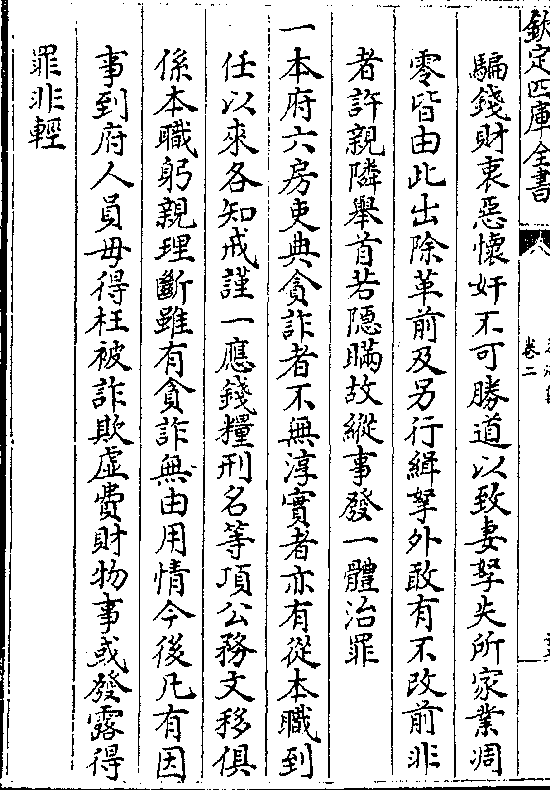 欽定四庫全書
卷二
騙錢財衷惡懷奸不可勝道以致妻孥失所家業凋
零皆由此出除革前及另行緝拏外敢有不改前非
者許親隣舉首若隠瞞故縱事發一體治罪
一本府六房吏典貪詐者不無淳實者亦有從本職到
任以來各知戒謹一應錢糧刑名等項公務文移俱
係本職躬親理斷雖有貪詐無由用情今後凡有因
事到府人員毋得枉被詐欺虛費財物事或發露得
罪非輕